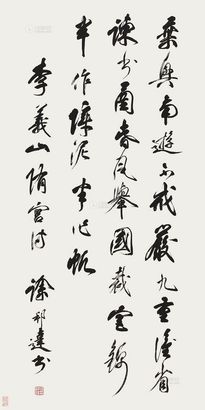 乘興南遊不戒嚴九重誰省
諫書函春風舉國裁宮錦
半作障泥半作帆
李義山隋宮詩 徐邦達書